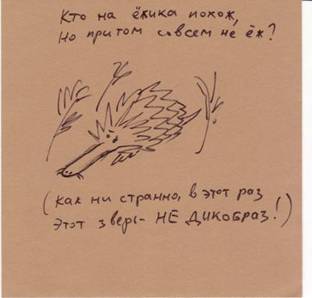 Кто на ёжика похож,
Но притом совсем не ёж?
(Как ни странно, в этот раз
Этот зверь - НЕ ДИКОБРАЗ!)